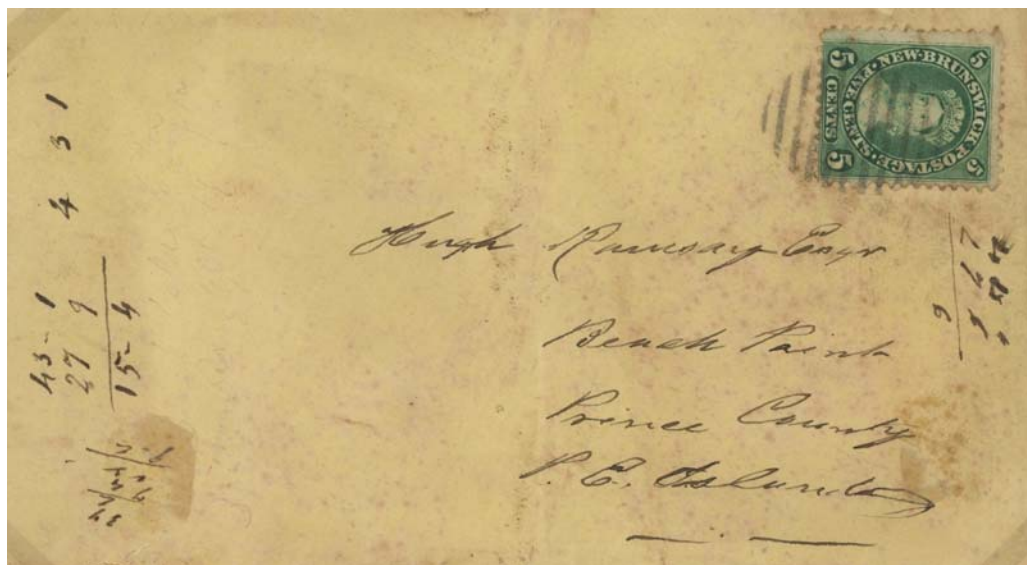 5 NEW·BRUNSWICK·POSTAGE· 5
5 FIVE CENTS 5
CENTS
Hugh Ramsay Esqr
Beach Point
Prince County
P. E. Island
4 3 1
43 - 1
27 9
15 - 4